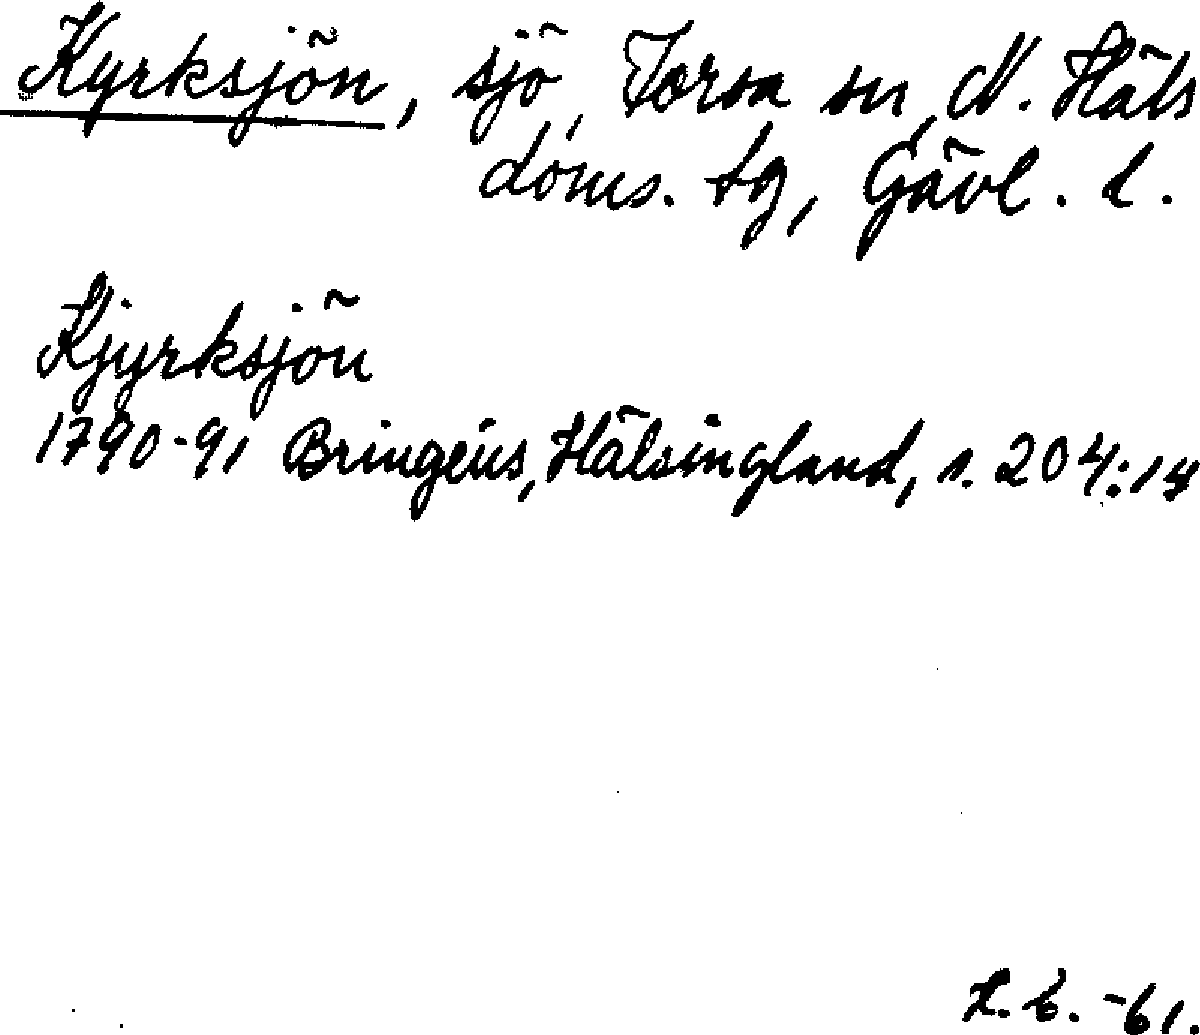 Kyrksjön, sjö, Forsa sn, N. Häls
doms. tg, Gävl. l.
Kjyrksjön
1790-91 Bringéus, Hälsingland, s. 204:14
L. b. -61.